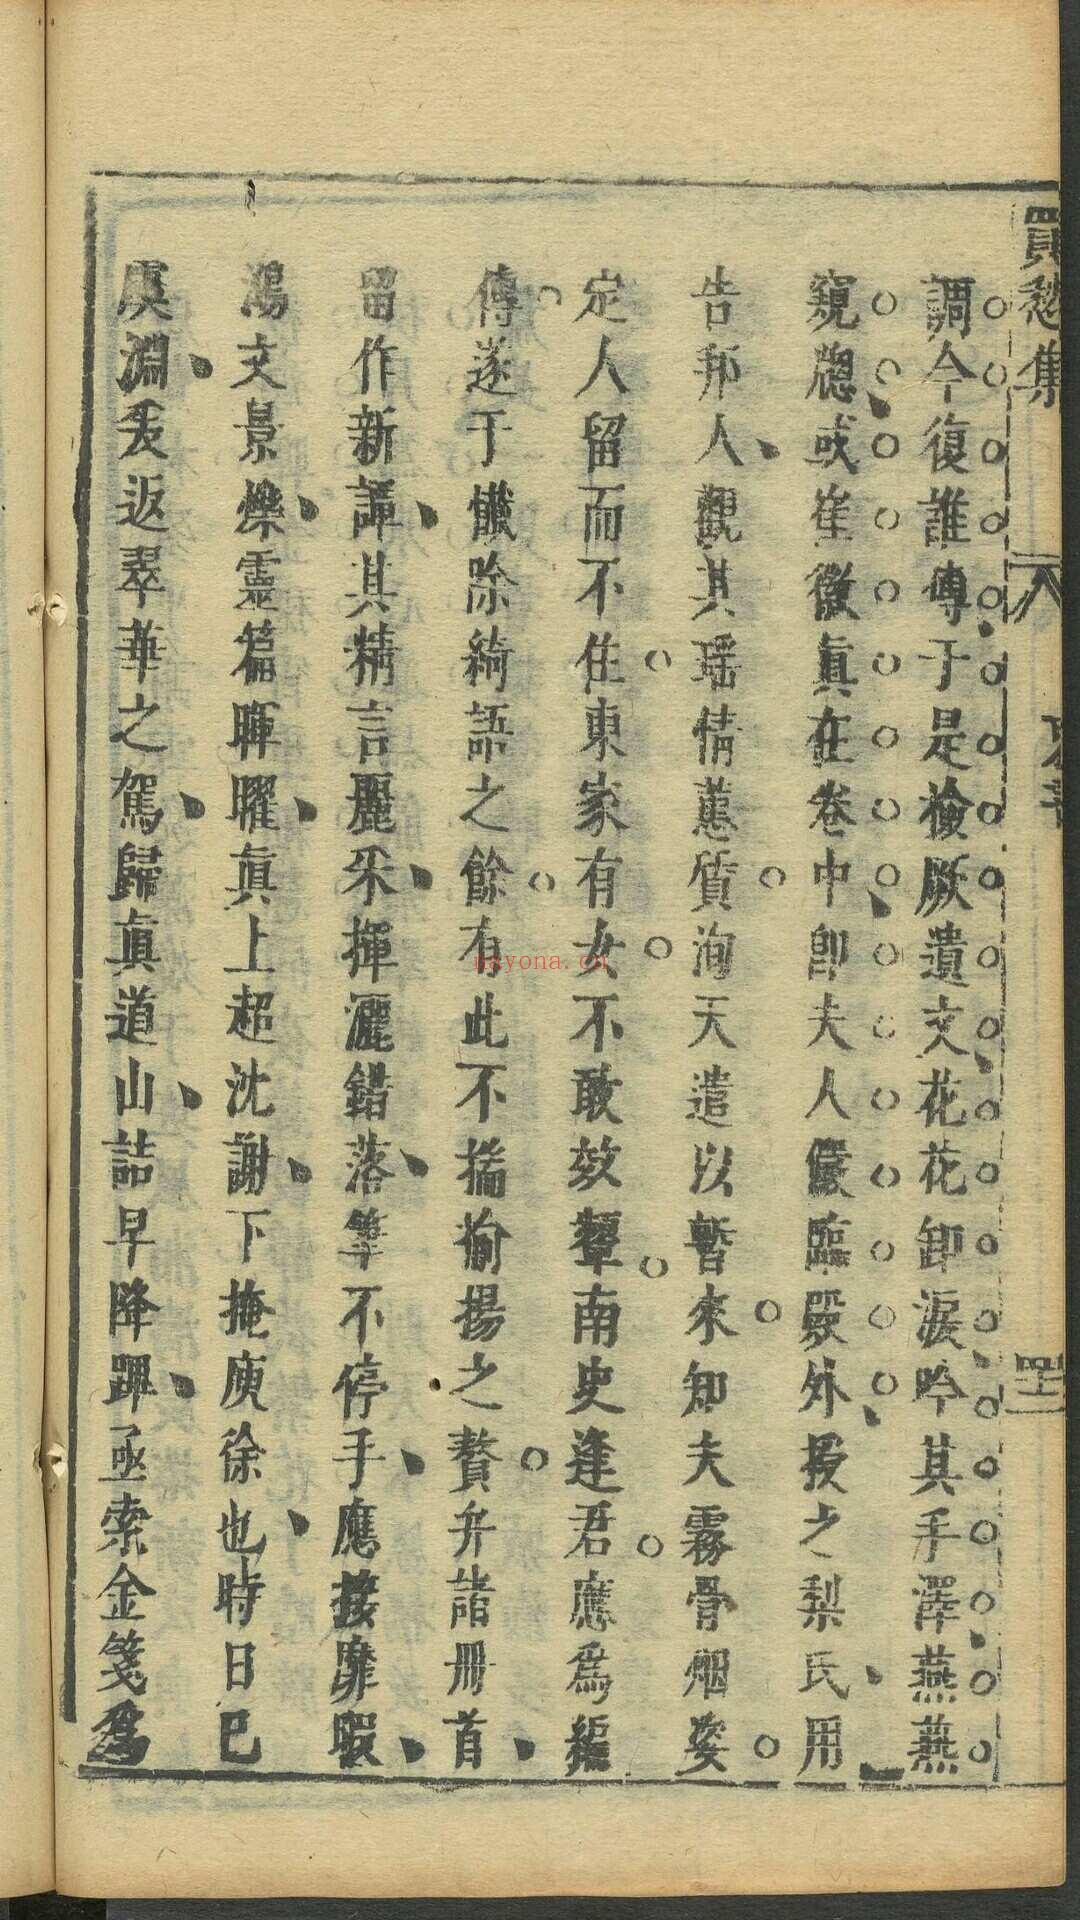 買愁集
調今復誰傳于是檢厥遺文花花卸淚吟其手澤燕燕
窺牕或崔徽眞在卷中卽夫人儼臨殿外授之梨氏用
告邦人觀其瑶情蕙質洵天遣以暫來知夫霧骨烟姿
定人留而不住東家有女不敢效顰南史逢君應爲編
傳遂于懺除綺語之餘有此不揣揄揚之贅弁諸册首
留作新譚其精言麗采揮灑錯落筆不停手應接靡暇
鴻文景爍靈篇暉曜眞上超沈謝下掩庾徐也時日已
虞淵爰返翠華之駕歸眞道山詰早降蹕亟索金箋爲
nayona.cn